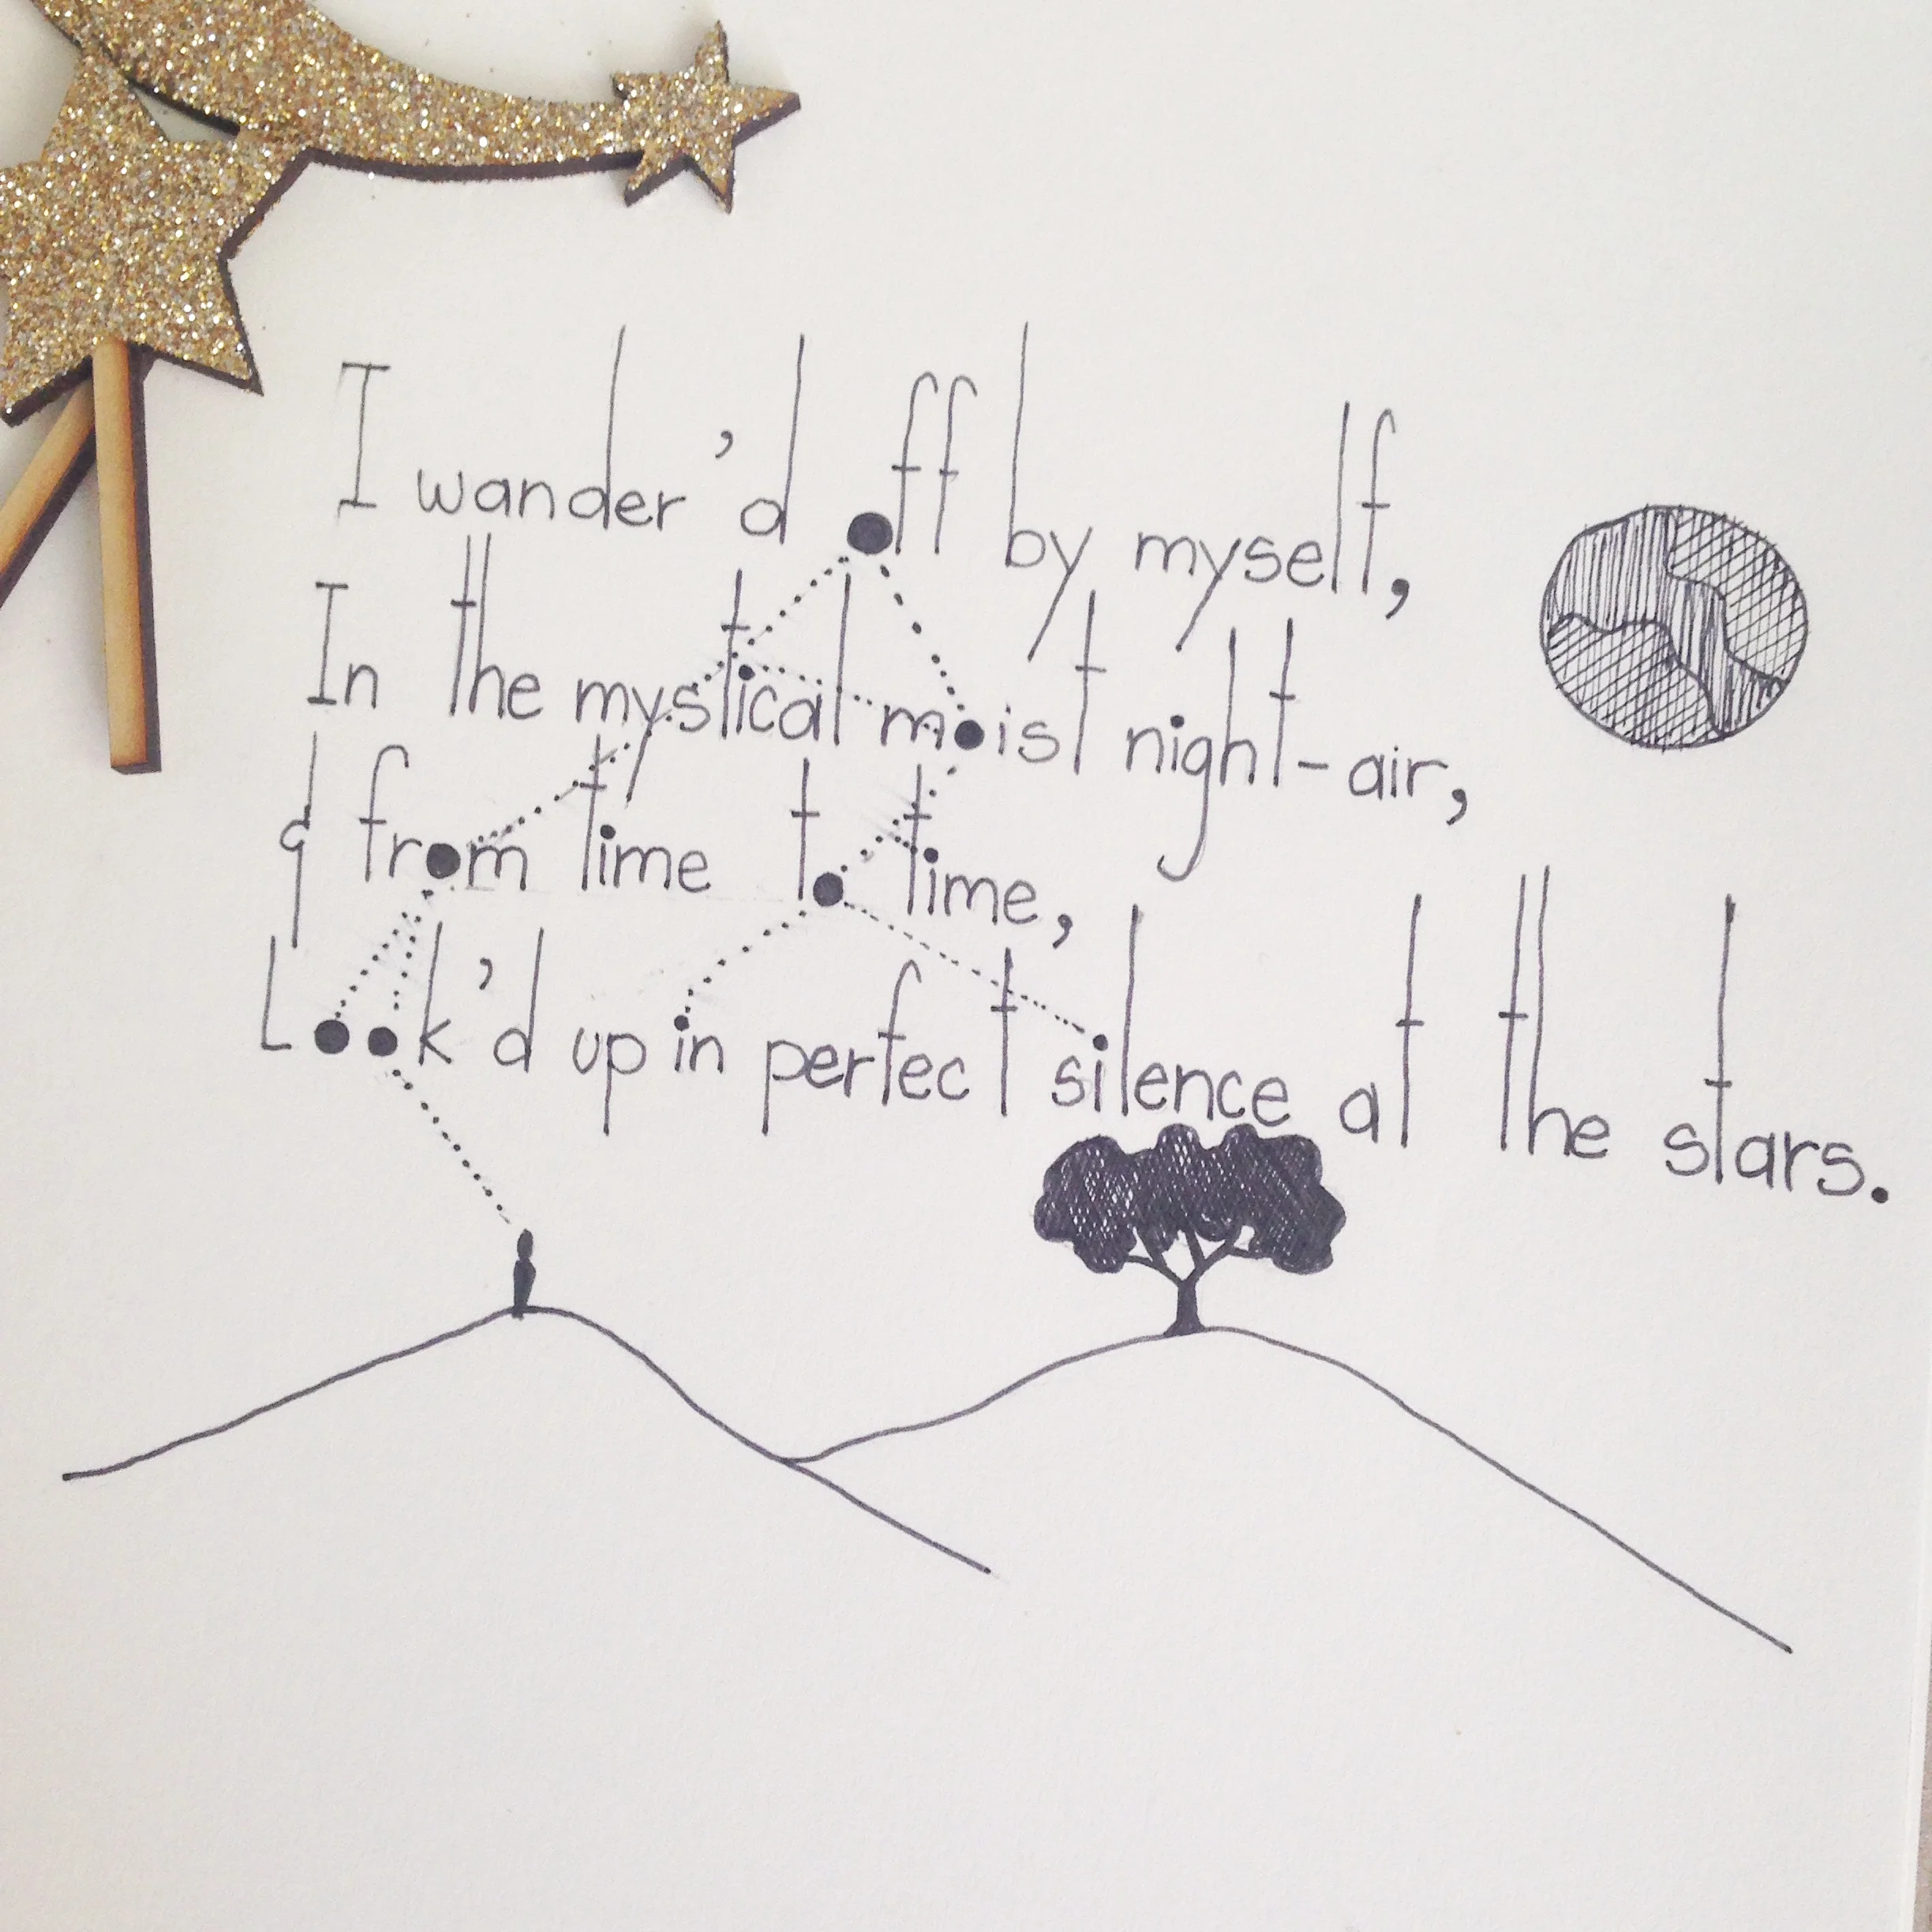 I wander'd off by myself,
In the mystical moist night-air,
& from time to time,
Look'd up in perfect silence at the stars.